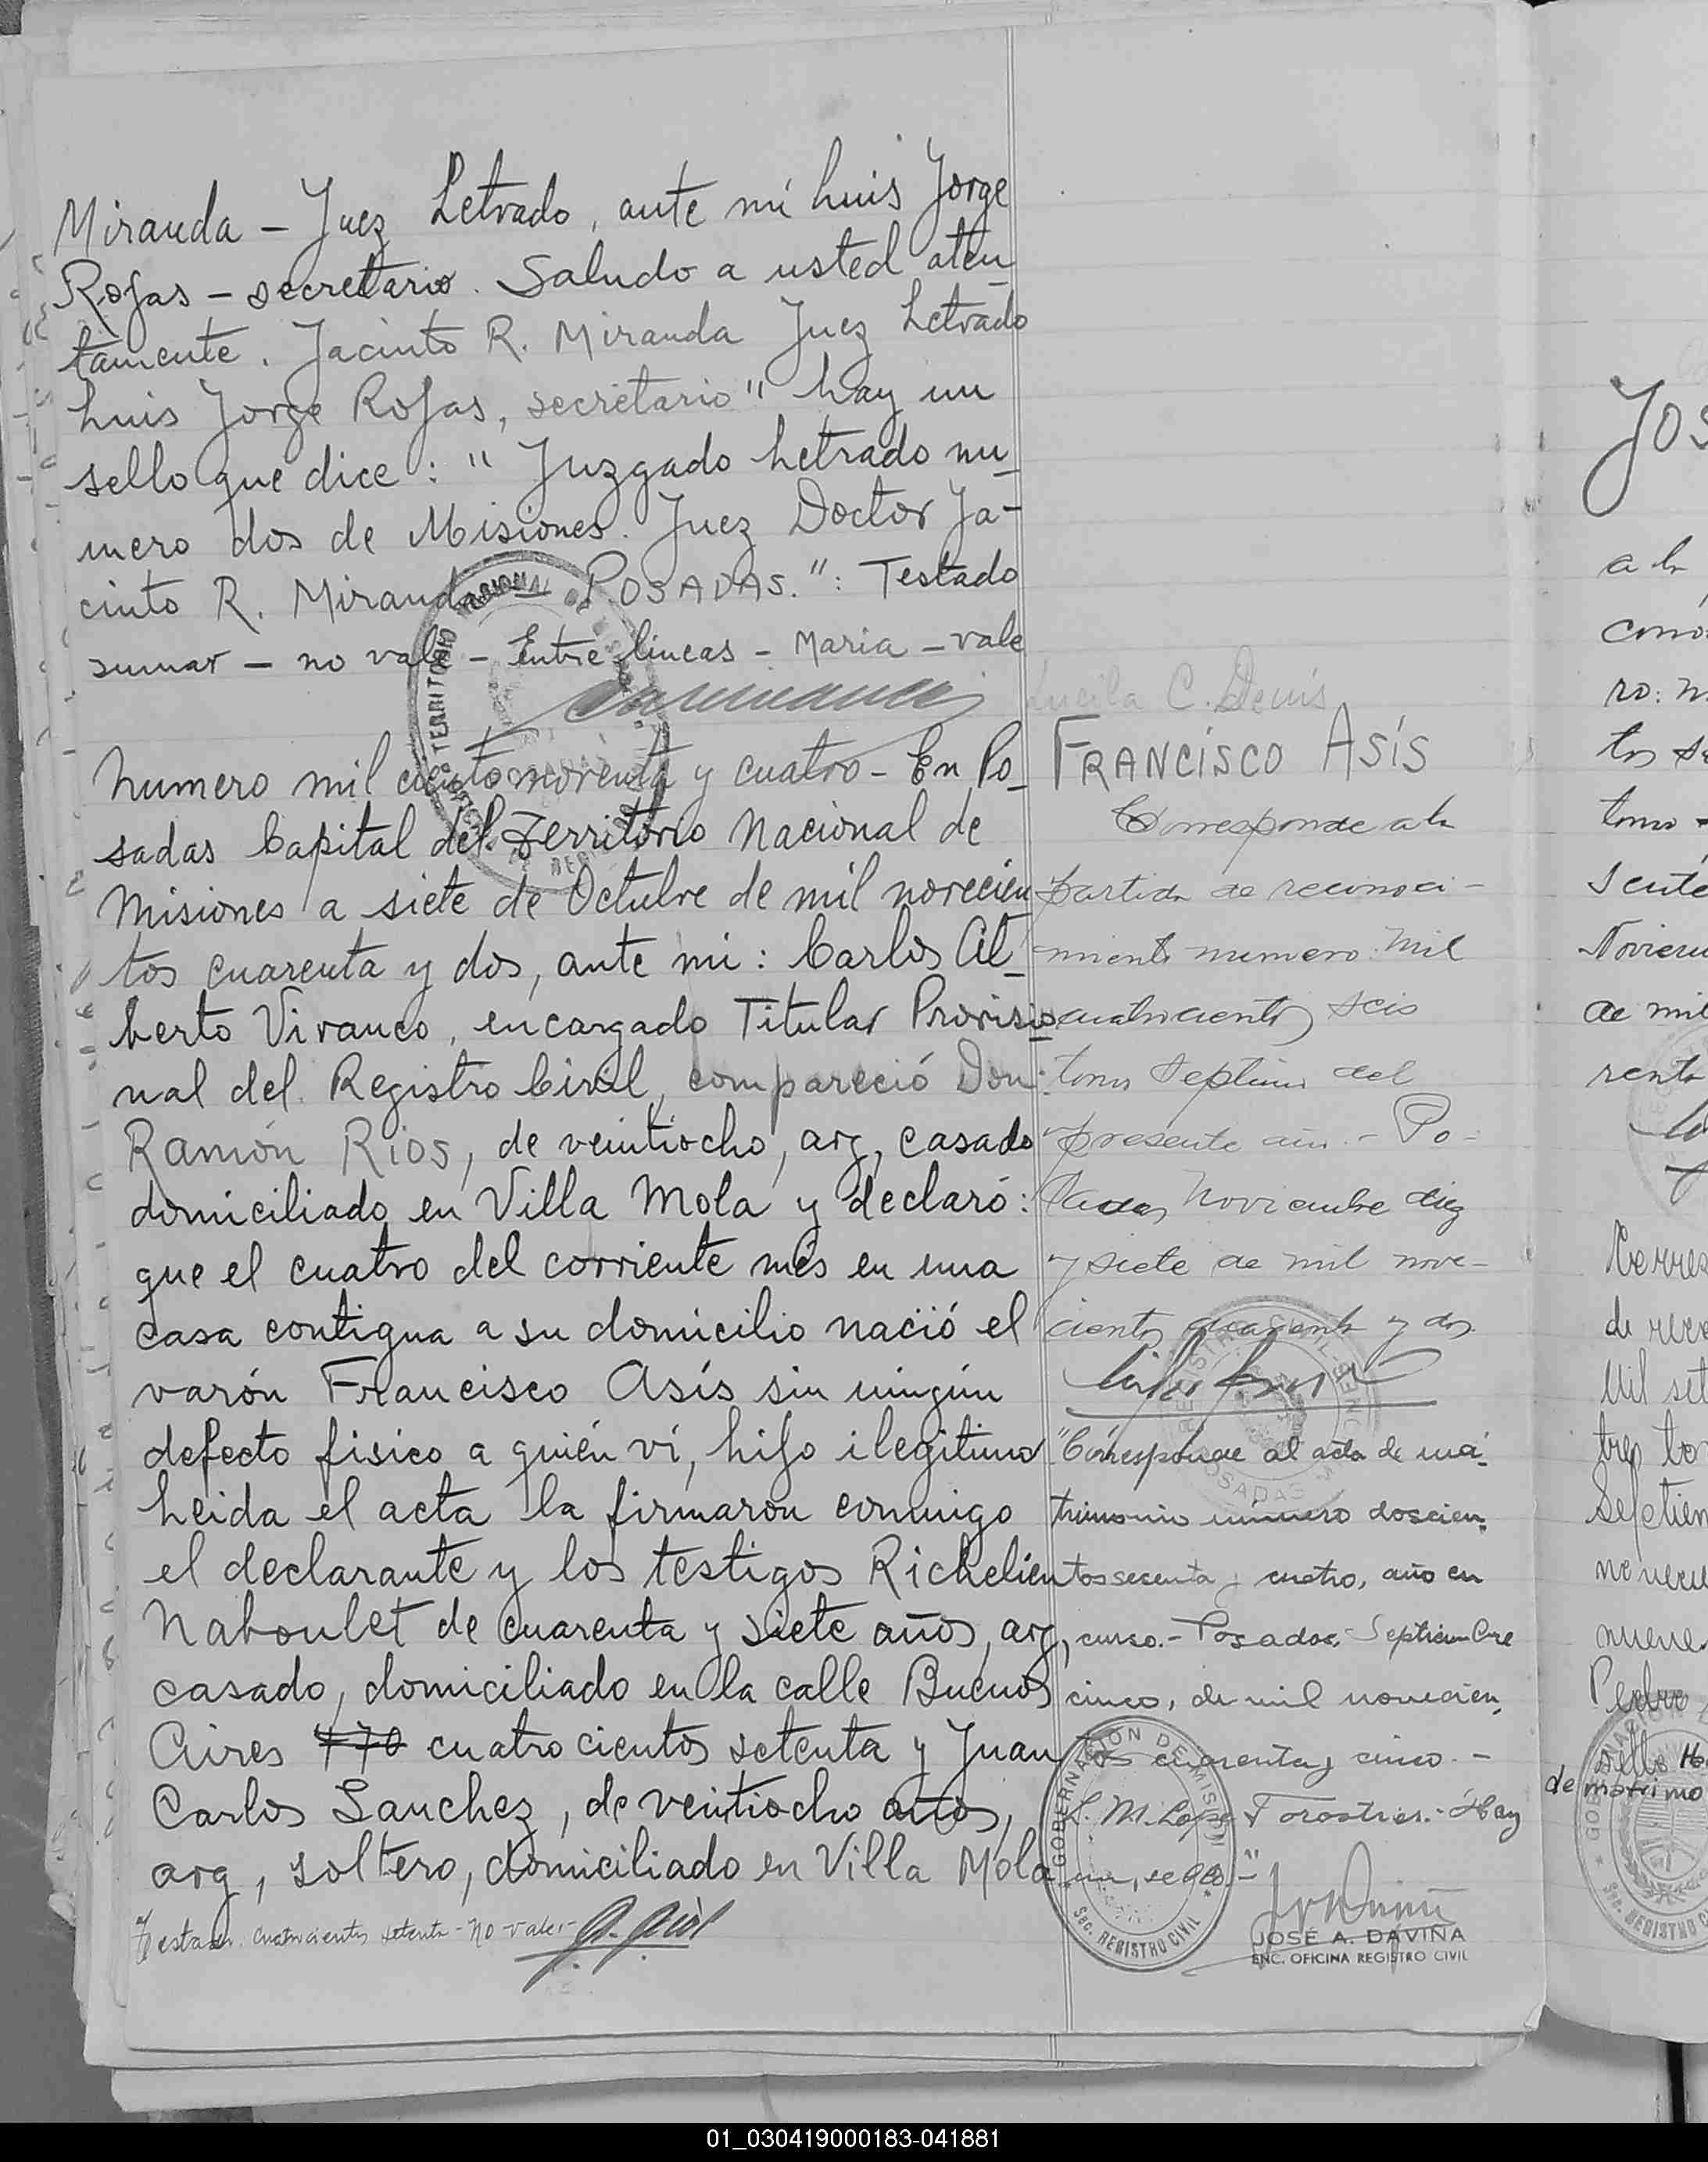 Miranda - Juez Letrado, ante mi Luis Jorge
Rojas - secretario. Saludo a usted aten-
tamente. Jacinto R. Miranda Juez Letrado
Luis Jorge Rojas, secretario" hay un
sello que dice: "Juzgado Letrado nu-
mero dos de Misiones. Juez Doctor Ja-
cinto R. Miranda - POSADAS.": Testado
sumar - no vale - Entre lineas - Maria - vale
Numero mil ciento noventa y cuatro - En Po-
sadas Capital del Territorio Nacional de
Misiones a siete de Octubre de mil novecien
tos cuarenta y dos, ante mi: Carlos Al-
berto Vivanco, encargado Titular Provisio-
nal del Registro Civil, compareció Don:
Ramón Rios, de veintiocho, arg, casado
domiciliado en Villa Mola y declaró:
que el cuatro del corriente més en una
casa contigua a su domicilio nació el
varón Francisco Asís sin ningún
defecto fisico a quién ví, hijo ilegitimo
Leida el acta la firmaron conmigo
el declarante y los testigos Richelieu
Naboulet de cuarenta y siete años, arg,
casado, domiciliado en la calle Buenos
Aires 470 cuatrocientos setenta y Juan
Carlos Sanchez, de veintiocho años,
arg, soltero, domiciliado en Villa Mola
Testado. cuatrocientos setenta - no vale -
Lucila C. Denis
FRANCISCO ASÍS
Corresponde a la
partida de reconoci-
miento numero mil
cuatrocientos seis
tomo septimo del
presente año. - Po-
sadas, Noviembre diez
y siete de mil nove-
cientos cuarenta y dos.
"Corresponde al acta de ma-
trimonio número doscien-
tos sesenta y cuatro, año en
curso. - Posadas, Septiembre
cinco, de mil novecien-
tos cuarenta y cinco. -
L. M. Lope Torostier. - Hay
un sello. -"
GOBERNACION DE MISIONES
Sec. REGISTRO CIVIL
JOSÉ A. DAVIÑA
ENC. OFICINA REGISTRO CIVIL
TERRITORIO NACIONAL
POSADAS
JOS
a la
ro: n
de mil
Corres
de reco
Mil set
tres to
Septiem
novecie
nueve.
Pedro
sello Ho
de matrimo
01_030419000183-041881